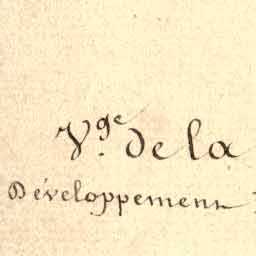 Vge. de la
Développement